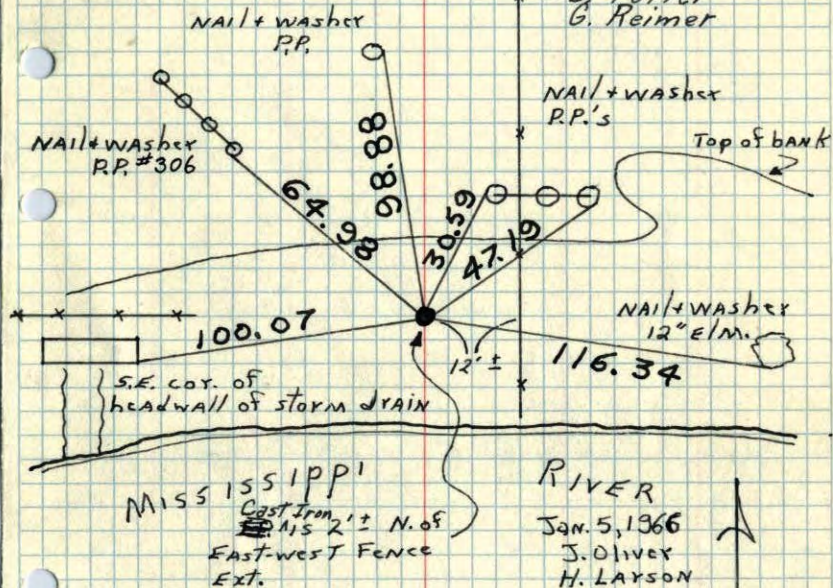 G. Reimer
NAIL + WASHER
P.P.
NAIL + WASHER
P.P.'s
Top of BANK
NAIL + WASHER
P.P. #306
98.88
64.98
30.59
47.19
NAIL + WASHER
12" ELM.
100.07
12' ±
116.34
S.E. cor. of
headwall of storm drain
MISSISSIPPI RIVER
Cast Iron
is 2' ± N. of
East-west Fence
Ext.
Jan. 5, 1966
J. Oliver
H. Larson